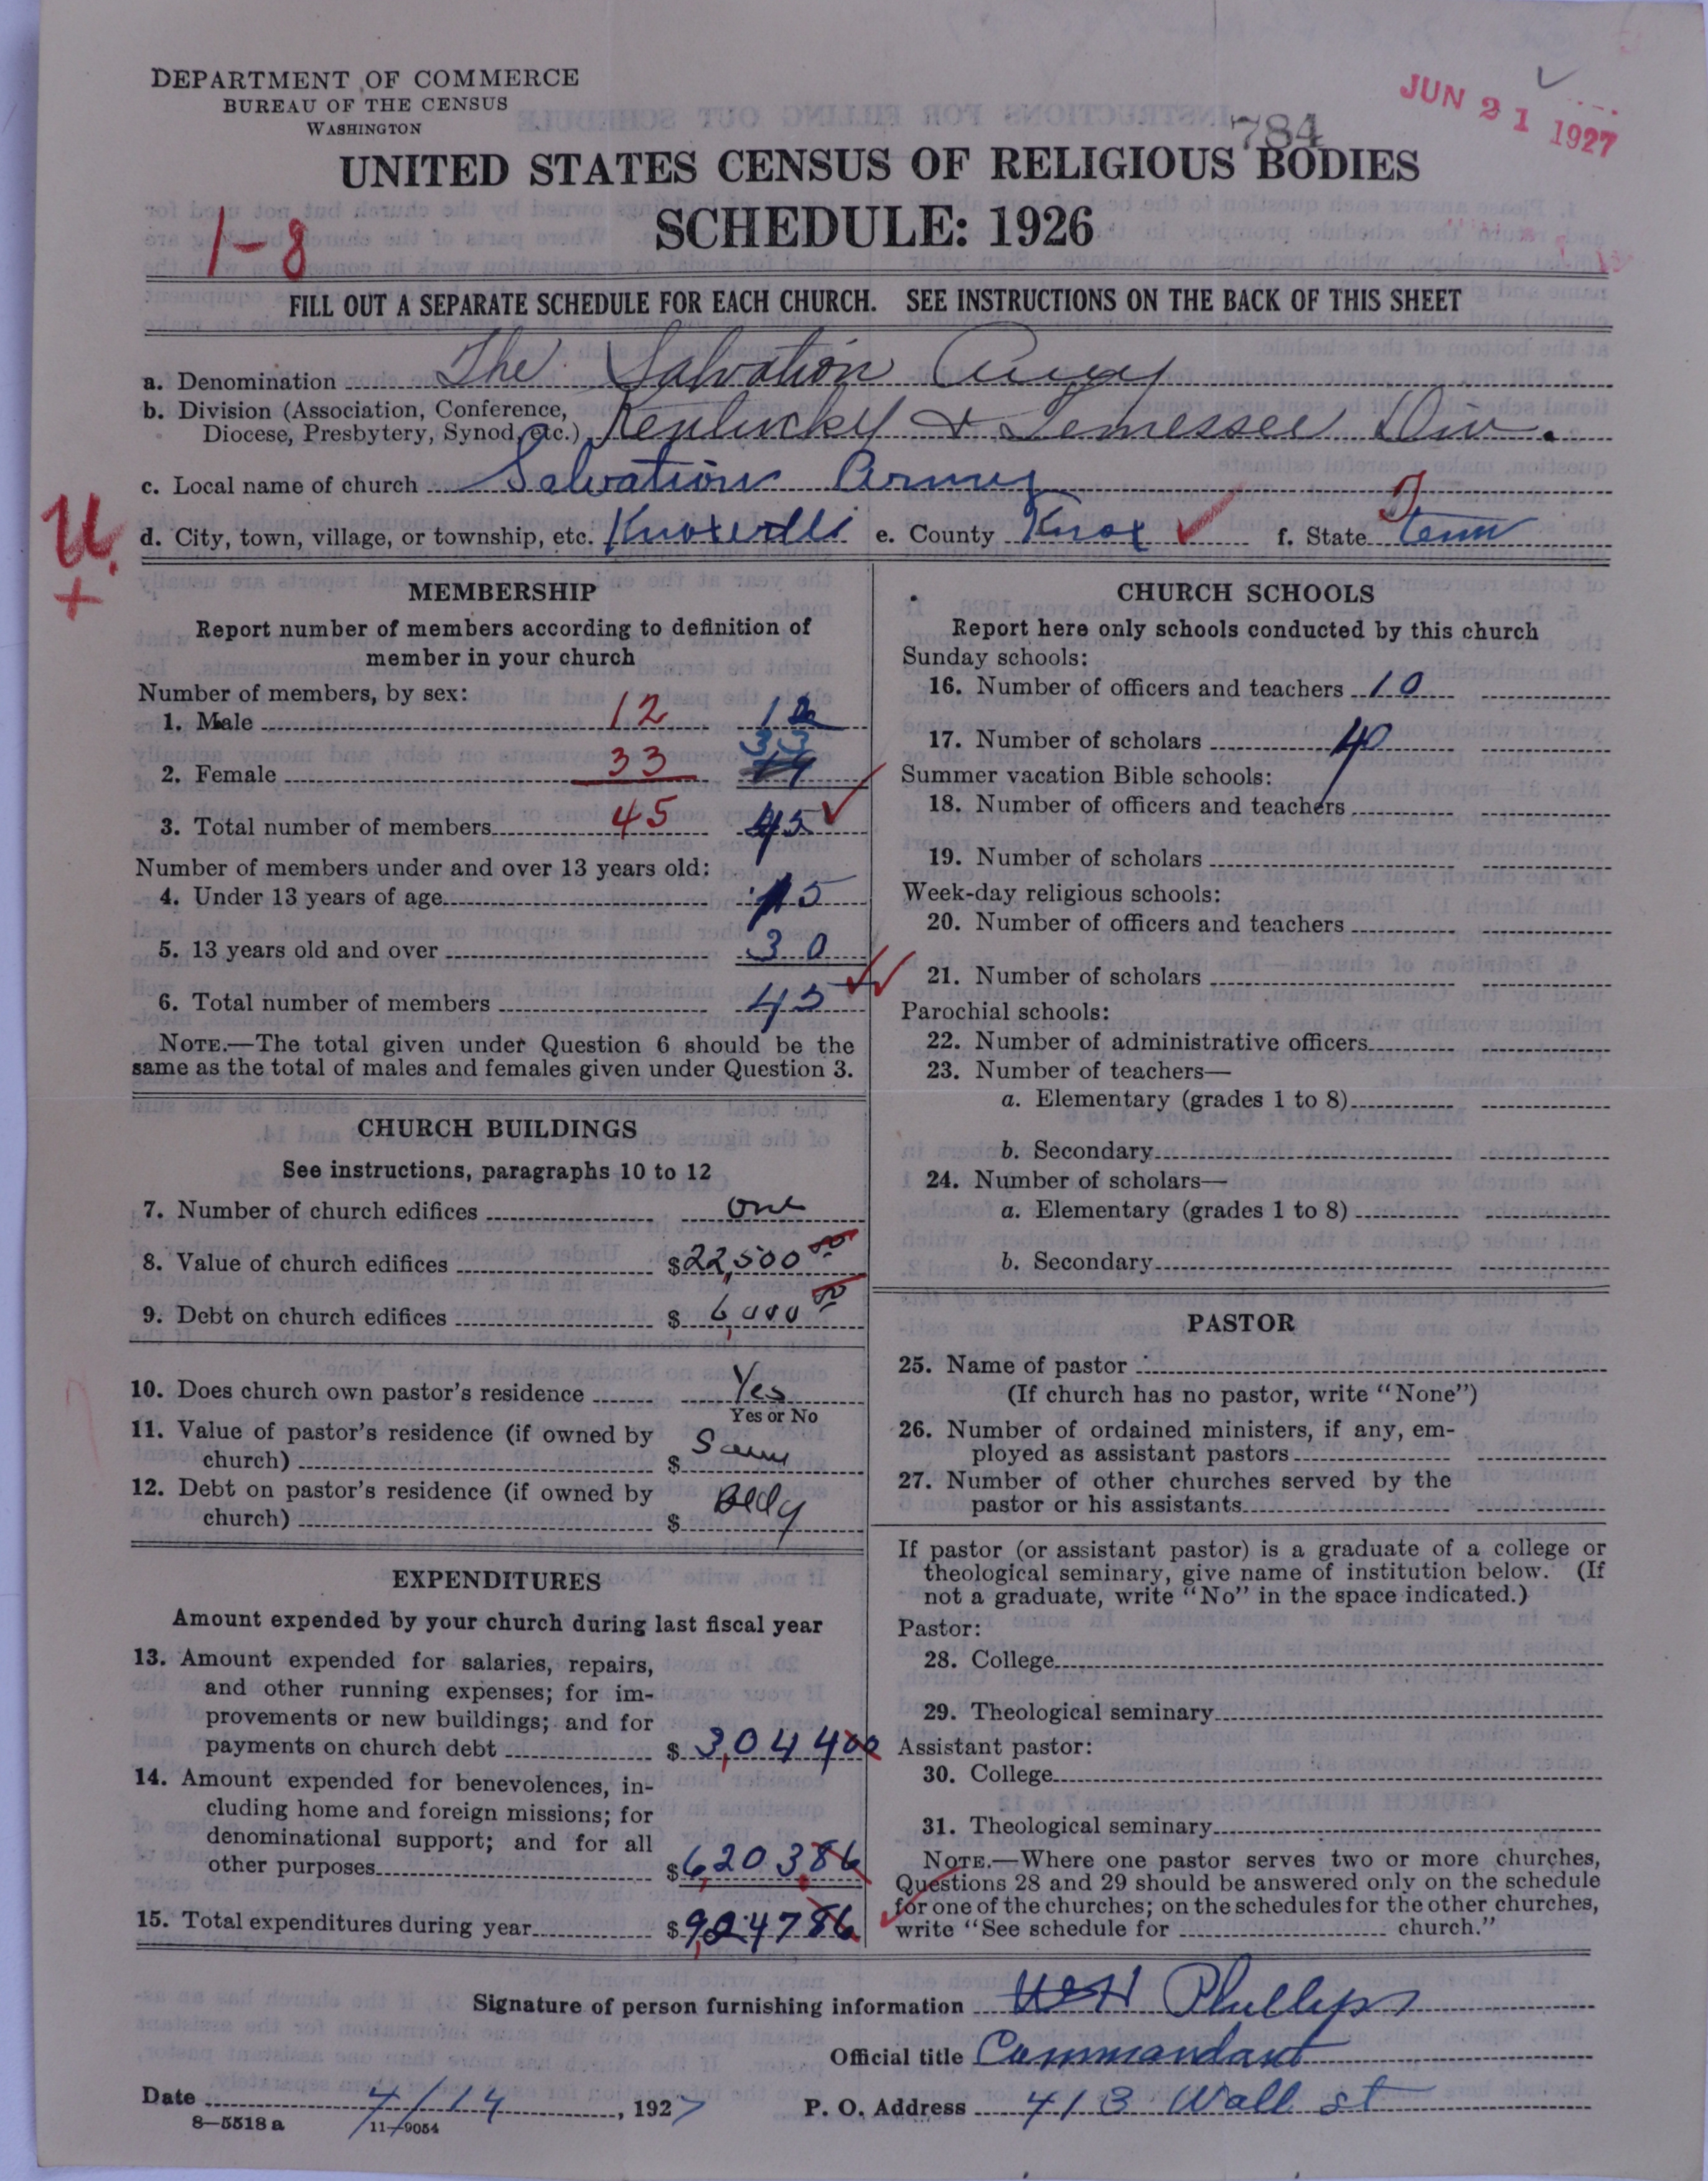 DEPARTMENT OF COMMERCE
BUREAU OF THE CENSUS
WASHINGTON
784
JUN 21 1927
UNITED STATES CENSUS OF RELIGIOUS BODIES
SCHEDULE: 1926
1-8
FILL OUT A SEPARATE SCHEDULE FOR EACH CHURCH. SEE INSTRUCTIONS ON THE BACK OF THIS SHEET
a. Denomination The Salvation Army
b. Division (Association, Conference, Diocese, Presbytery, Synod, etc.) Kentucky & Temessee Div.
c. Local name of church Salvation Army
U.
+
d. City, town, village, or township, etc. Knoxville e. County Knox f. State Tenn
MEMBERSHIP
Report number of members according to definition of
member in your church
Number of members, by sex:
1. Male 12 12
2. Female 33 33
3. Total number of members 45 45
Number of members under and over 13 years old:
4. Under 13 years of age 15
5. 13 years old and over 30
6. Total number of members 45
NOTE.—The total given under Question 6 should be the
same as the total of males and females given under Question 3.
CHURCH BUILDINGS
See instructions, paragraphs 10 to 12
7. Number of church edifices One
8. Value of church edifices $22,500 00
9. Debt on church edifices $ 6,000 00
10. Does church own pastor's residence Yes
Yes or No
11. Value of pastor's residence (if owned by
church) $ Same
12. Debt on pastor's residence (if owned by
church) $ Bldg
EXPENDITURES
Amount expended by your church during last fiscal year
13. Amount expended for salaries, repairs,
and other running expenses; for im-
provements or new buildings; and for
payments on church debt $ 3,044 00
14. Amount expended for benevolences, in-
cluding home and foreign missions; for
denominational support; and for all
other purposes $6,203.86
15. Total expenditures during year $9,247 86
CHURCH SCHOOLS
Report here only schools conducted by this church
Sunday schools:
16. Number of officers and teachers 10
17. Number of scholars 40
Summer vacation Bible schools:
18. Number of officers and teachers
19. Number of scholars
Week-day religious schools:
20. Number of officers and teachers
21. Number of scholars
Parochial schools:
22. Number of administrative officers
23. Number of teachers—
a. Elementary (grades 1 to 8)
b. Secondary
24. Number of scholars—
a. Elementary (grades 1 to 8)
b. Secondary
PASTOR
25. Name of pastor
(If church has no pastor, write "None")
26. Number of ordained ministers, if any, em-
ployed as assistant pastors
27. Number of other churches served by the
pastor or his assistants
If pastor (or assistant pastor) is a graduate of a college or
theological seminary, give name of institution below. (If
not a graduate, write "No" in the space indicated.)
Pastor:
28. College
29. Theological seminary
Assistant pastor:
30. College
31. Theological seminary
NOTE.—Where one pastor serves two or more churches,
Questions 28 and 29 should be answered only on the schedule
for one of the churches; on the schedules for the other churches,
write "See schedule for church."
Signature of person furnishing information Phillips
Official title Commandant
Date 4/14, 1927 P. O. Address 413 Wall st
8—5518 a 11—9054